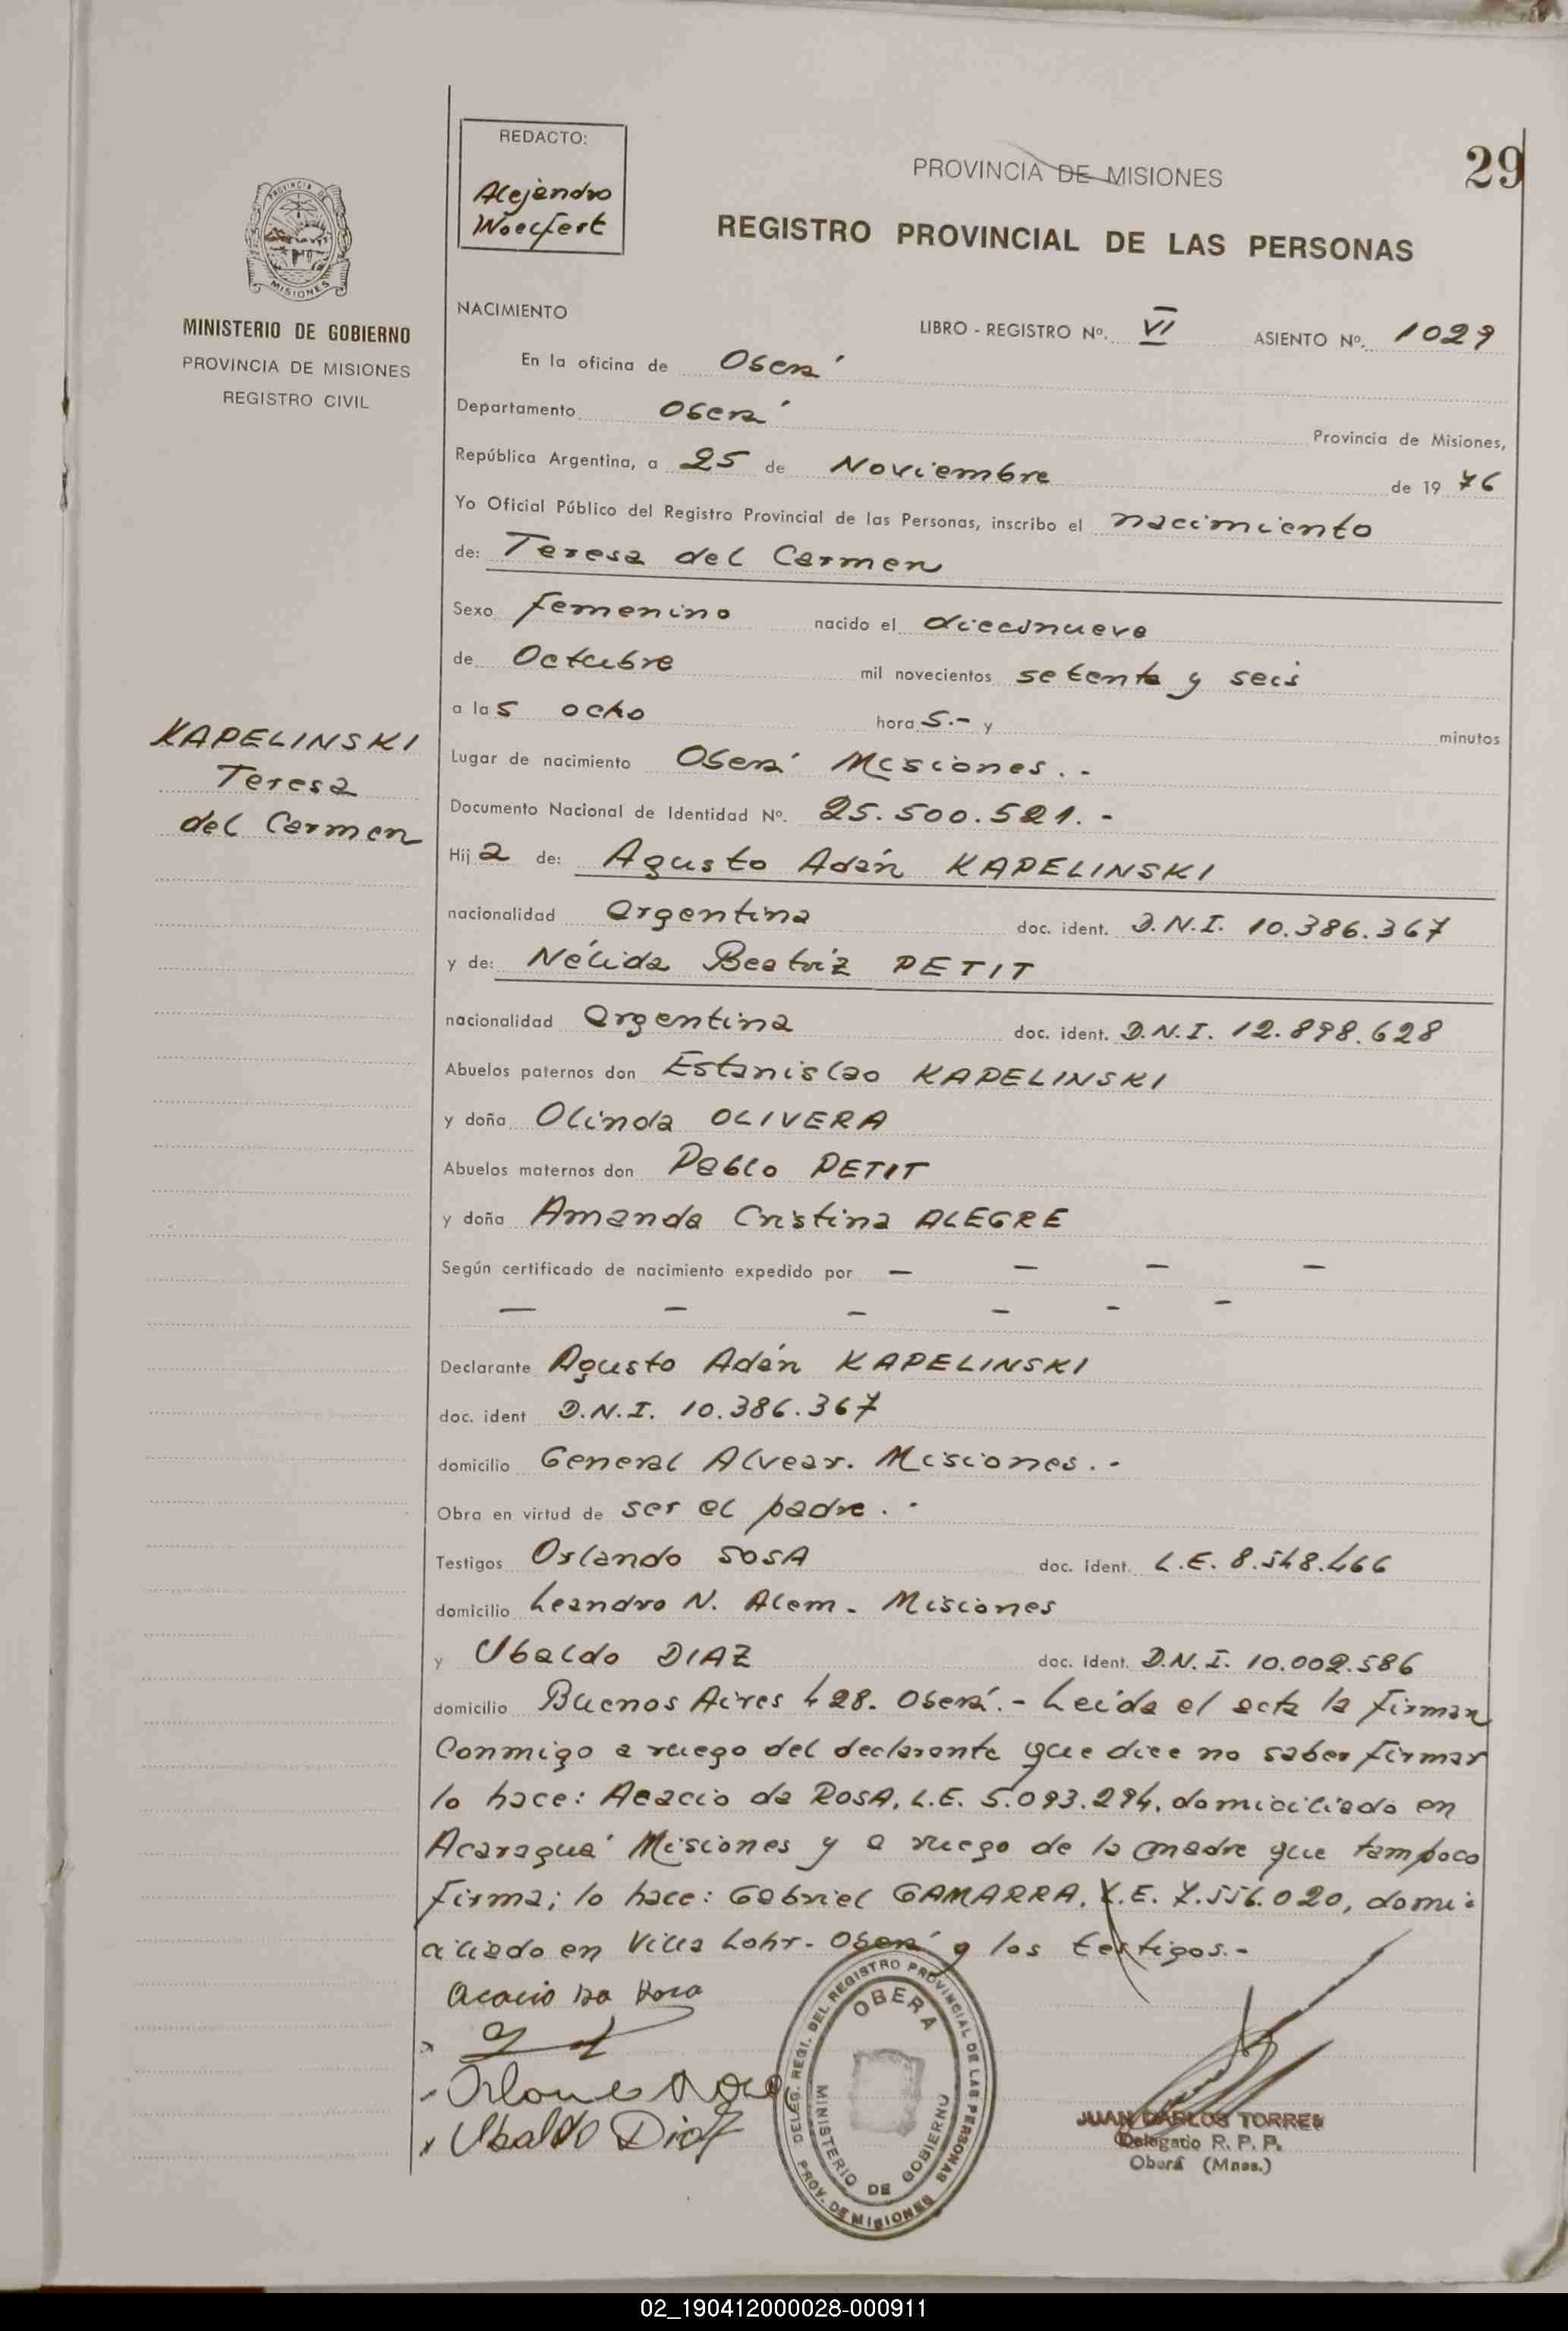 REDACTO:
Alejandro
Woelfert
PROVINCIA DE MISIONES
29
REGISTRO PROVINCIAL DE LAS PERSONAS
PROVINCIA DE
MISIONES
MINISTERIO DE GOBIERNO
PROVINCIA DE MISIONES
REGISTRO CIVIL
NACIMIENTO
LIBRO - REGISTRO Nº. VI ASIENTO Nº. 1029
En la oficina de Oberá
Departamento Oberá Provincia de Misiones,
República Argentina, a 25 de Noviembre de 19 76
Yo Oficial Público del Registro Provincial de las Personas, inscribo el nacimiento
de: Teresa del Carmen
Sexo femenino nacido el diecinueve
de Octubre mil novecientos setenta y seis
a las ocho hora s.- y minutos
KAPELINSKI
Teresa
del Carmen
Lugar de nacimiento Oberá Misiones.-
Documento Nacional de Identidad Nº. 25.500.521.-
Hija de: Agusto Adán KAPELINSKI
nacionalidad Argentina doc. ident. D.N.I. 10.386.367
y de: Nélida Beatriz PETIT
nacionalidad Argentina doc. ident. D.N.I. 12.898.628
Abuelos paternos don Estanislao KAPELINSKI
y doña Olinda OLIVERA
Abuelos maternos don Pablo PETIT
y doña Amanda Cristina ALEGRE
Según certificado de nacimiento expedido por — — — —
— — — — - -
Declarante Agusto Adán KAPELINSKI
doc. ident D.N.I. 10.386.367
domicilio General Alvear. Misiones.-
Obra en virtud de ser el padre.-
Testigos Orlando SOSA doc. ident. L.E. 8.548.466
domicilio Leandro N. Alem. Misiones
y Ubaldo DIAZ doc. ident. D.N.I. 10.002.586
domicilio Buenos Aires 428. Oberá.- Leída el acta la firman
Conmigo a ruego del declarante que dice no saber firmar
lo hace: Acacio da ROSA, L.E. 5.093.294, domiciliado en
Acaraguá Misiones y a ruego de la madre que tampoco
firma; lo hace: Gabriel GAMARRA, L.E. 7.556.020, domi-
ciliado en Villa Lohr- Oberá y los testigos.-
Acacio Da Rosa
Ubaldo Diaz
DELEG. REGI. DEL REGISTRO PROVINCIAL DE LAS PERSONAS
OBERA
MINISTERIO DE GOBIERNO
PROV. DE MISIONES
JUAN CARLOS TORRES
Delegado R. P. P.
Oberá (Mnes.)
02_190412000028-000911